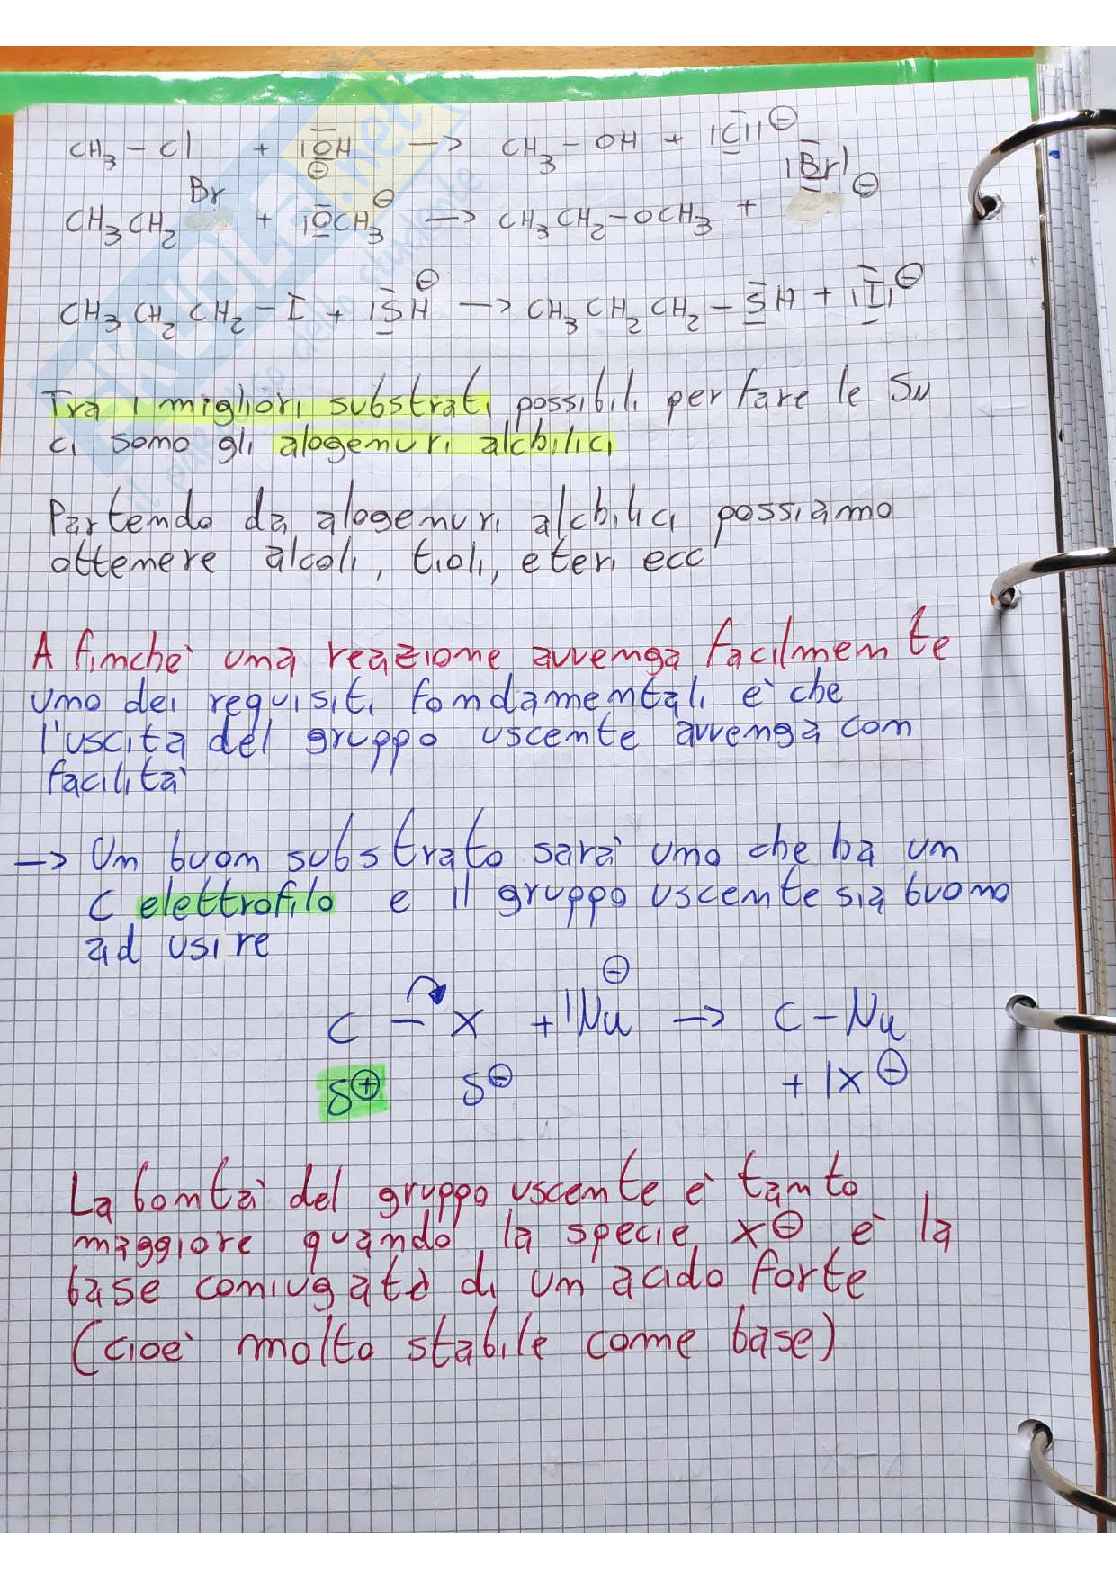 CH₃ – Cl + |OH ⊖ → CH₃ – OH + |Cl| ⊖
CH₃CH₂ Br + |OCH₃ ⊖ → CH₃CH₂–OCH₃ + |Br| ⊖
CH₃CH₂CH₂–I + |SH ⊖ → CH₃CH₂CH₂–SH + |I| ⊖
Tra i migliori substrati possibili per fare le SN
ci sono gli alogenuri alchilici
Partendo da alogenuri alchilici possiamo
ottenere alcoli, tioli, eteri ecc
A finchè una reazione avvenga facilmente
uno dei requisiti fondamentali è che
l'uscita del gruppo uscente avvenga con
facilità
→ Un buon substrato sarà uno che ha un
C elettrofilo e il gruppo uscente sia buono
ad usire
C – X + |Nu ⊖ → C – Nu
δ⊕ δ⊖ + |X ⊖
La bontà del gruppo uscente è tanto
maggiore quando la specie X⊖ è la
base coniugata di un acido forte
(cioè molto stabile come base)